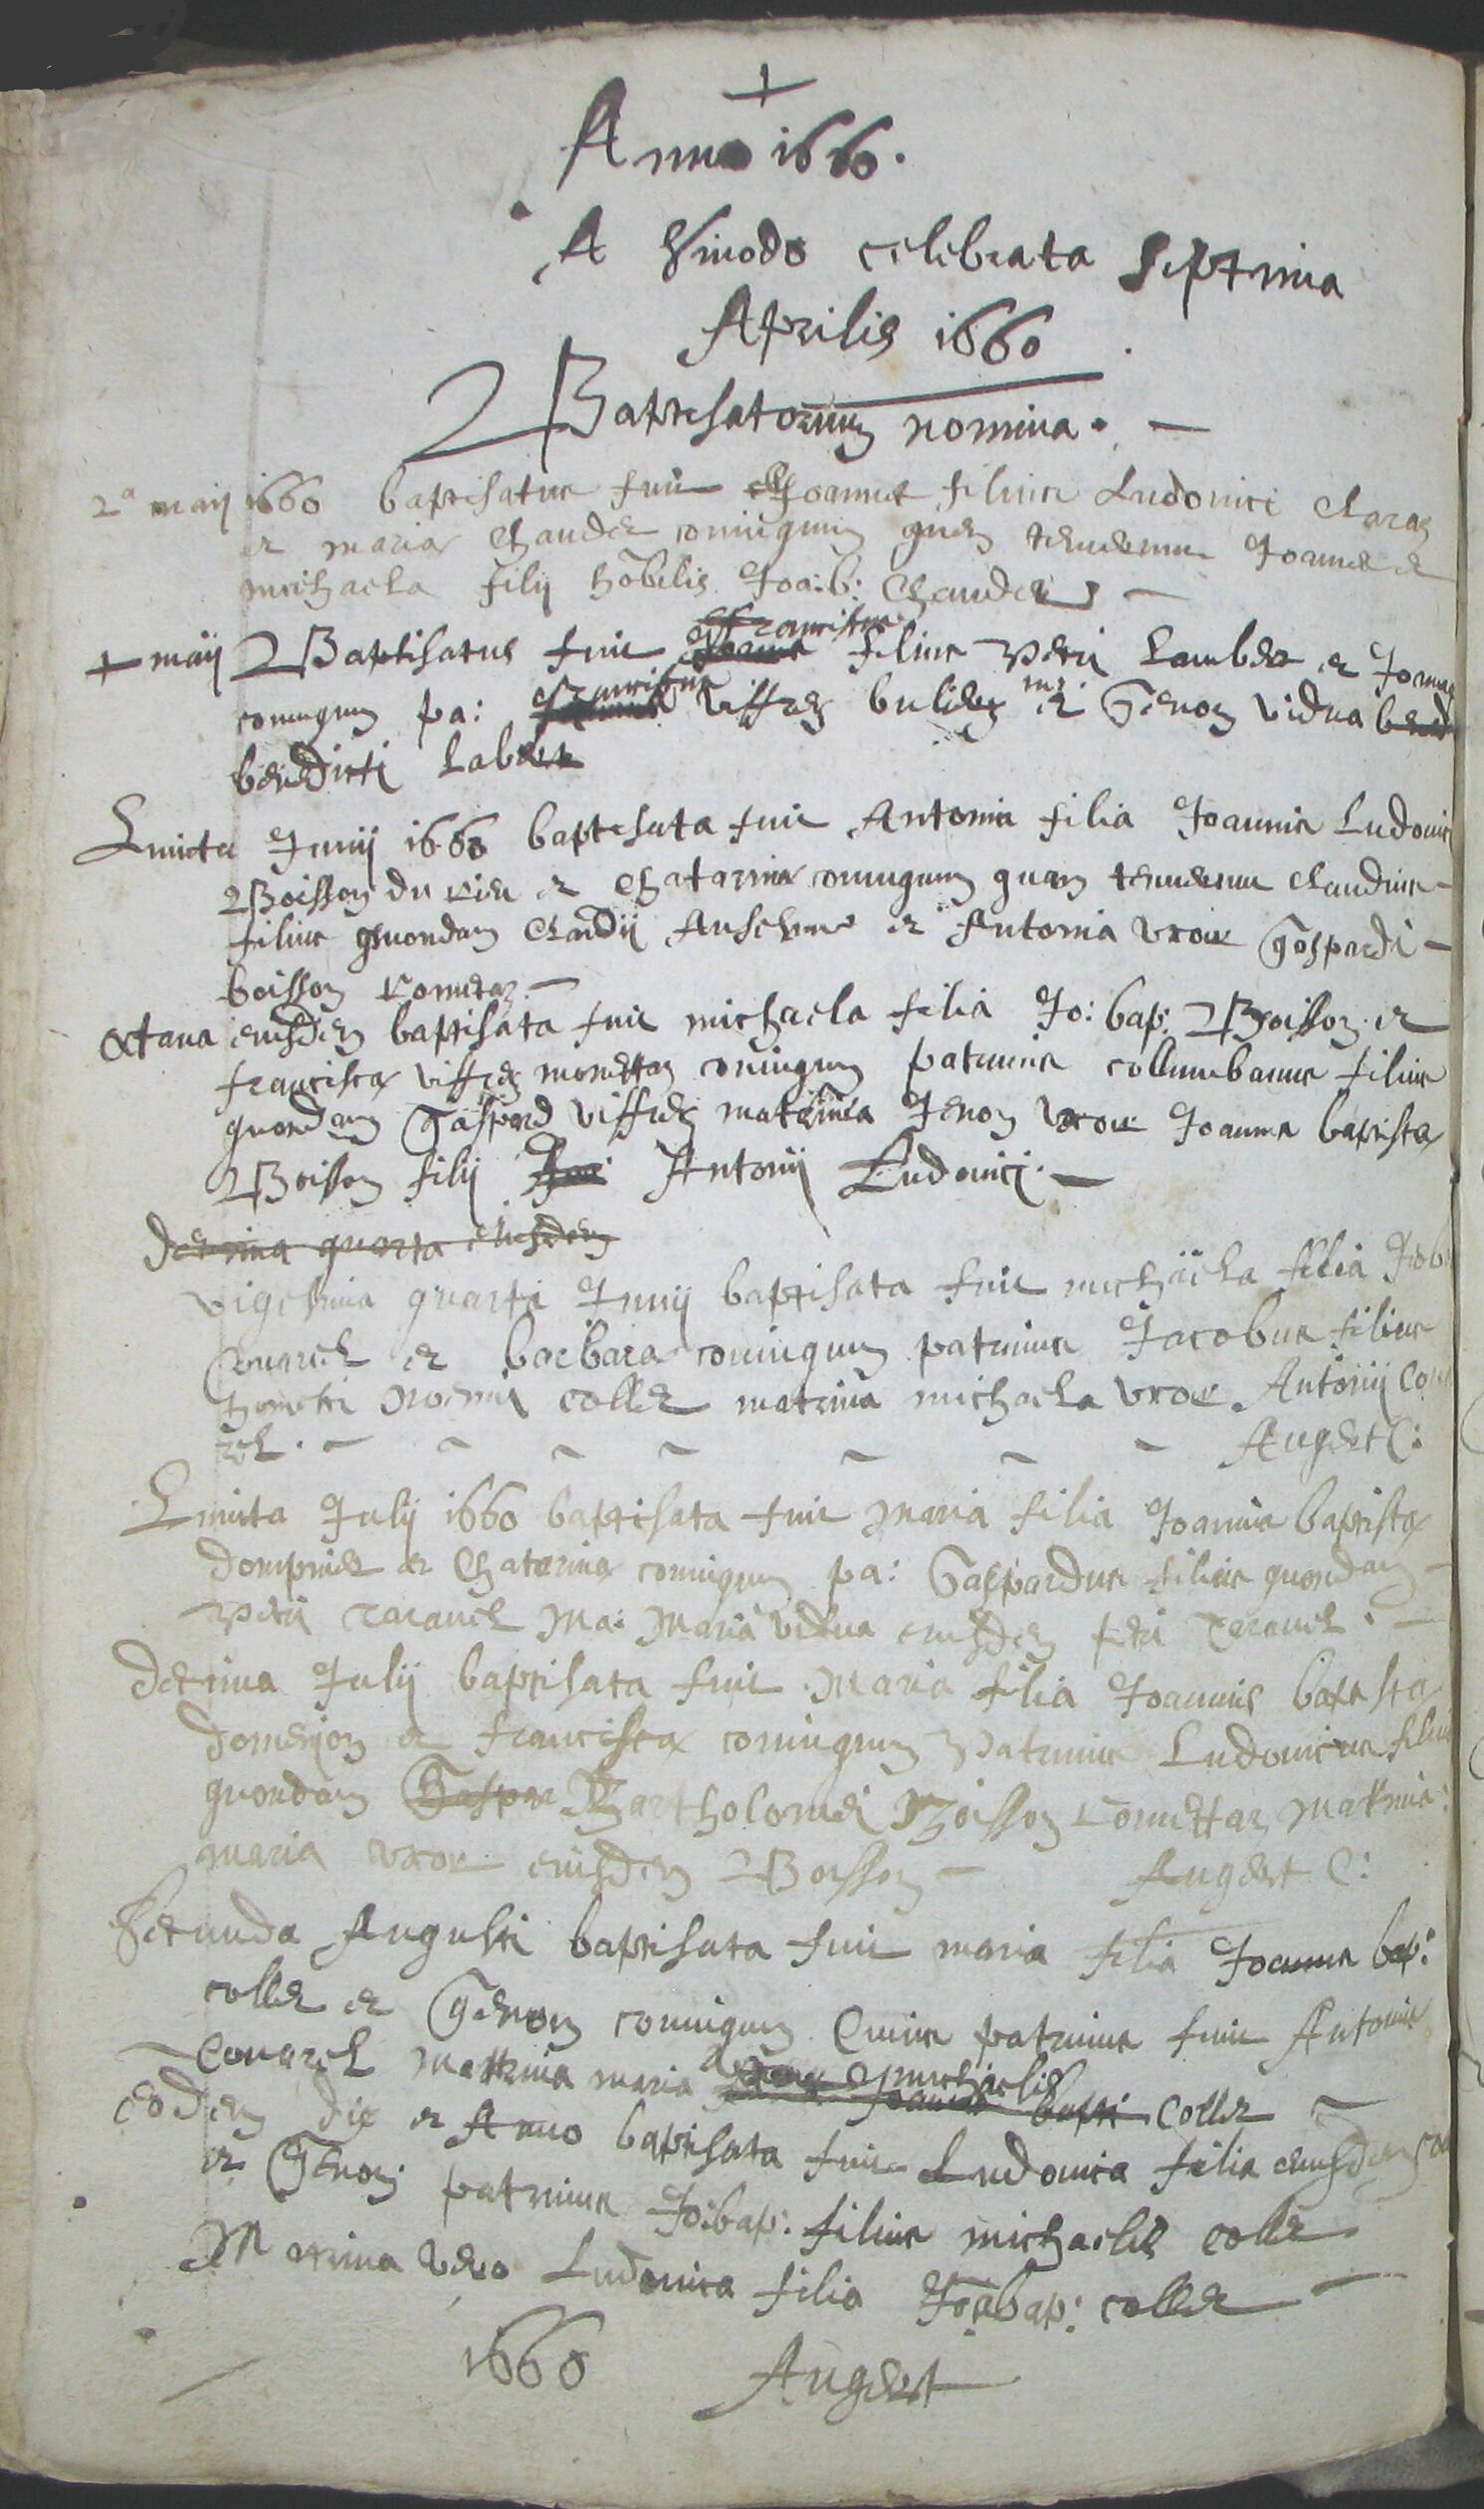 +
Anno 1660.
A Sinodo celebrata Septima
Aprilis 1660
Baptisatorum nomina. —
2a maij 1660 baptisatus fuit Joannes filius Ludovici Claraz
et mariæ Chaudet coniugum quem tenuerunt Joannes et
michaela filij hobelis Joa: b: Chaudet —
+ maij Baptisatus fuit franciscus filius petri Lambert et Joannæ
coniugum pa: franciscus viffrey bulliez ma: Genon vidua
benedicti Labert
Quinta Junij 1660 baptisata fuit Antonia filia Joannis Ludovici
Boisson du rieu et Chatarinæ coniugum quam tenuerunt Claudius
filius quondam Claudij Anselme et Antonia uxor Gaspardi
boisson
octava eiusdem baptisata fuit michaela filia Jo: bap: Boisson et
franciscæ viffrey coniugum patrinus collumbanus filius
quondam Gaspard viffrey matrina Jenon uxor Joannis baptistæ
Boisson filij Antonij Ludovici. —
decima quarta eiusdem
vigesima quarta Junij baptisata fuit michaela filia
Couarel et barbaræ coniugum patrinus Jacobus filius
honesti collet matrina michaela uxor Antonij Coua
rel. — Augert C:
Quinta Julij 1660 baptisata fuit Maria filia Joannis baptistæ
dompnier et Chatarinæ coniugum pa: Gaspardus filius quondam
petri taravel Ma: Maria vidua eiusdem petri taravel. —
decima Julij baptisata fuit Maria filia Joannis baptistæ
domenjon et franciscæ coniugum Patrinus Ludovicus filius
quondam Gaspar Bartholomei Boisson Matrina:
maria uxor eiusdem Boisson — Augert C:
Secunda Augusti baptisata fuit maria filia Joannis bap:
collet et Genon coniugum Cuius patrinus fuit Antonius
Couarel matrina maria michaelis Joannis bapti Collet
eodem die et Anno baptisata fuit Ludovica filia eiusdem
et Genon patrinus Jo: bap: filius michaelis collet
Matrina vero Ludovica filia Joa bap: collet —
1660 Augert